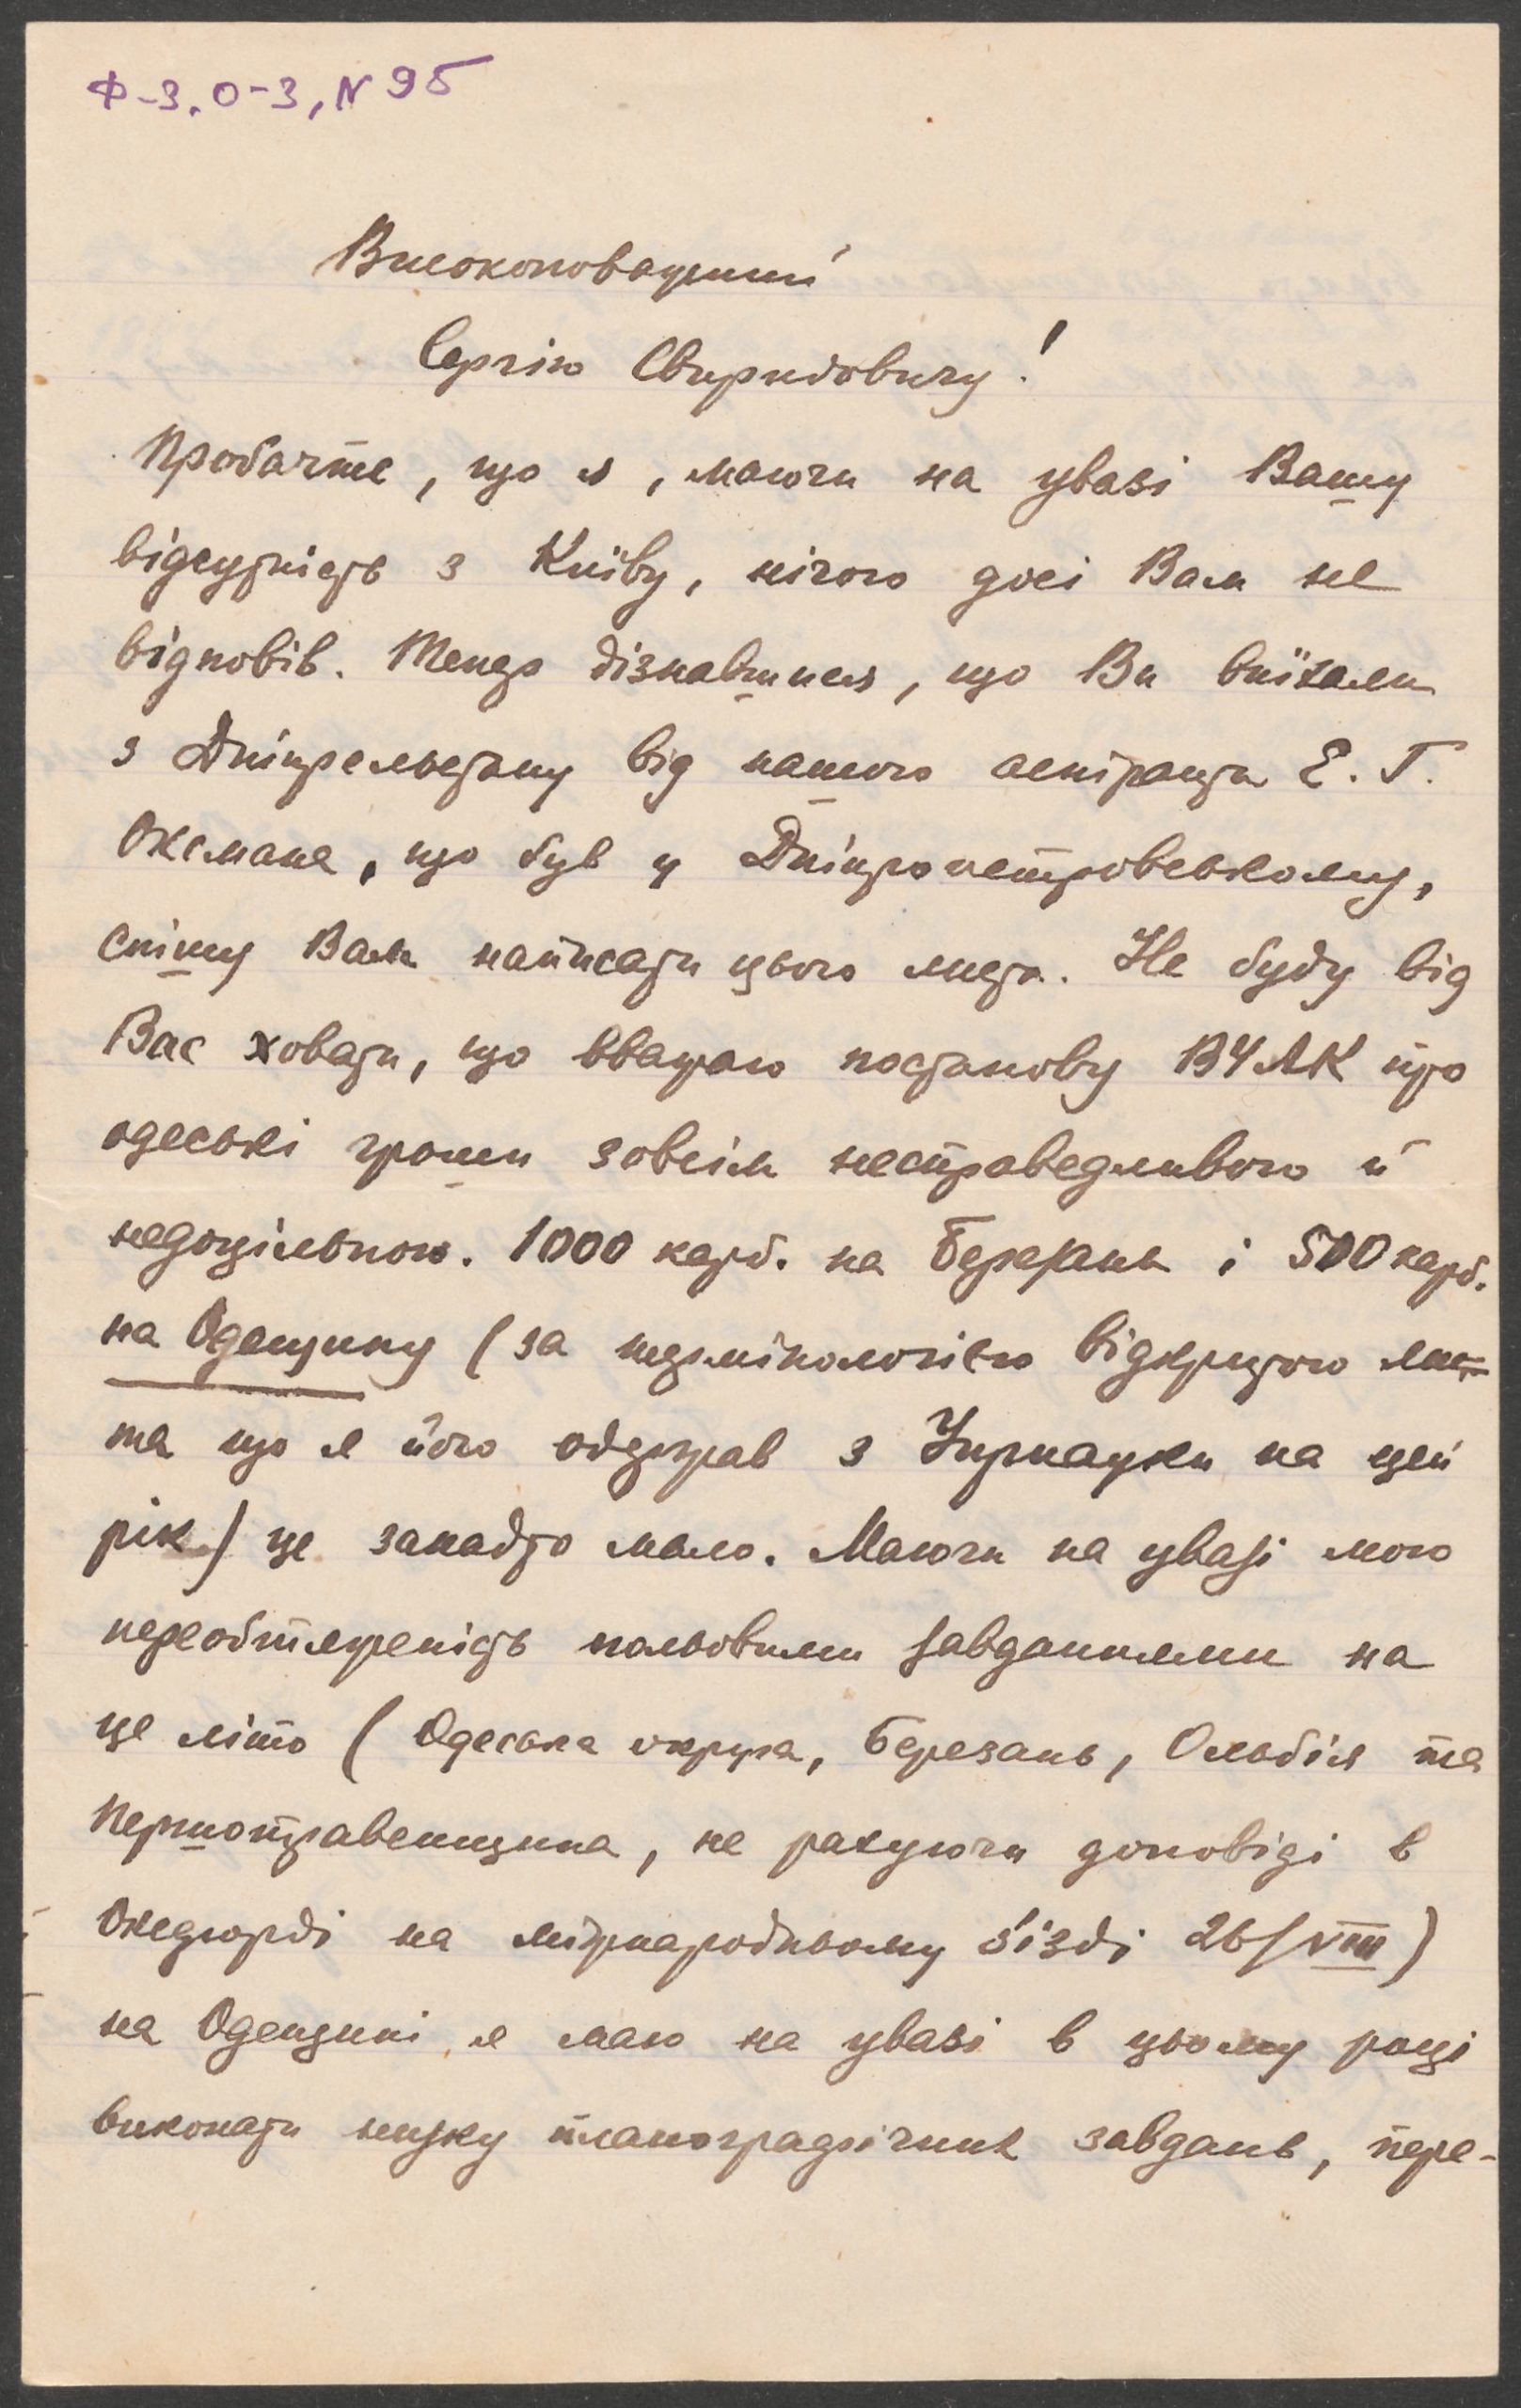 Ф-3, О-3, N 95
Високоповажний
Сергію Свиридовичу!
Пробачте, що я, маючи на увазі Вашу
відсутність з Київу, нічого досі Вам не
відповів. Тепер дізнавшися, що Ви виїхали
з Дніпрельстану від нашого аспіранта Е. Г.
Оксмана, що був у Дніпропетровському,
спішу Вам написати цього листа. Не буду від
Вас ховати, що вважаю постанову ВУАК про
одеські гроші зовсім несправедливою й
недоцільною. 1000 карб. на Березань і 500 карб.
на Одещину (за термінологією відкритого лис-
та що я його одержав з Укрнауки на цей
рік) це занадто мало. Маючи на увазі мою
переобтяженість польовими завданнями на
це літо (Одеська округа, Березань, Ольбія та
Першотравенщина, не рахуючи доповіді в
Оксфорді на міжнародньому з'їзді 26/VIII)
на Одещині я маю на увазі в цьому році
виконати низку планографічних завдань, пере-